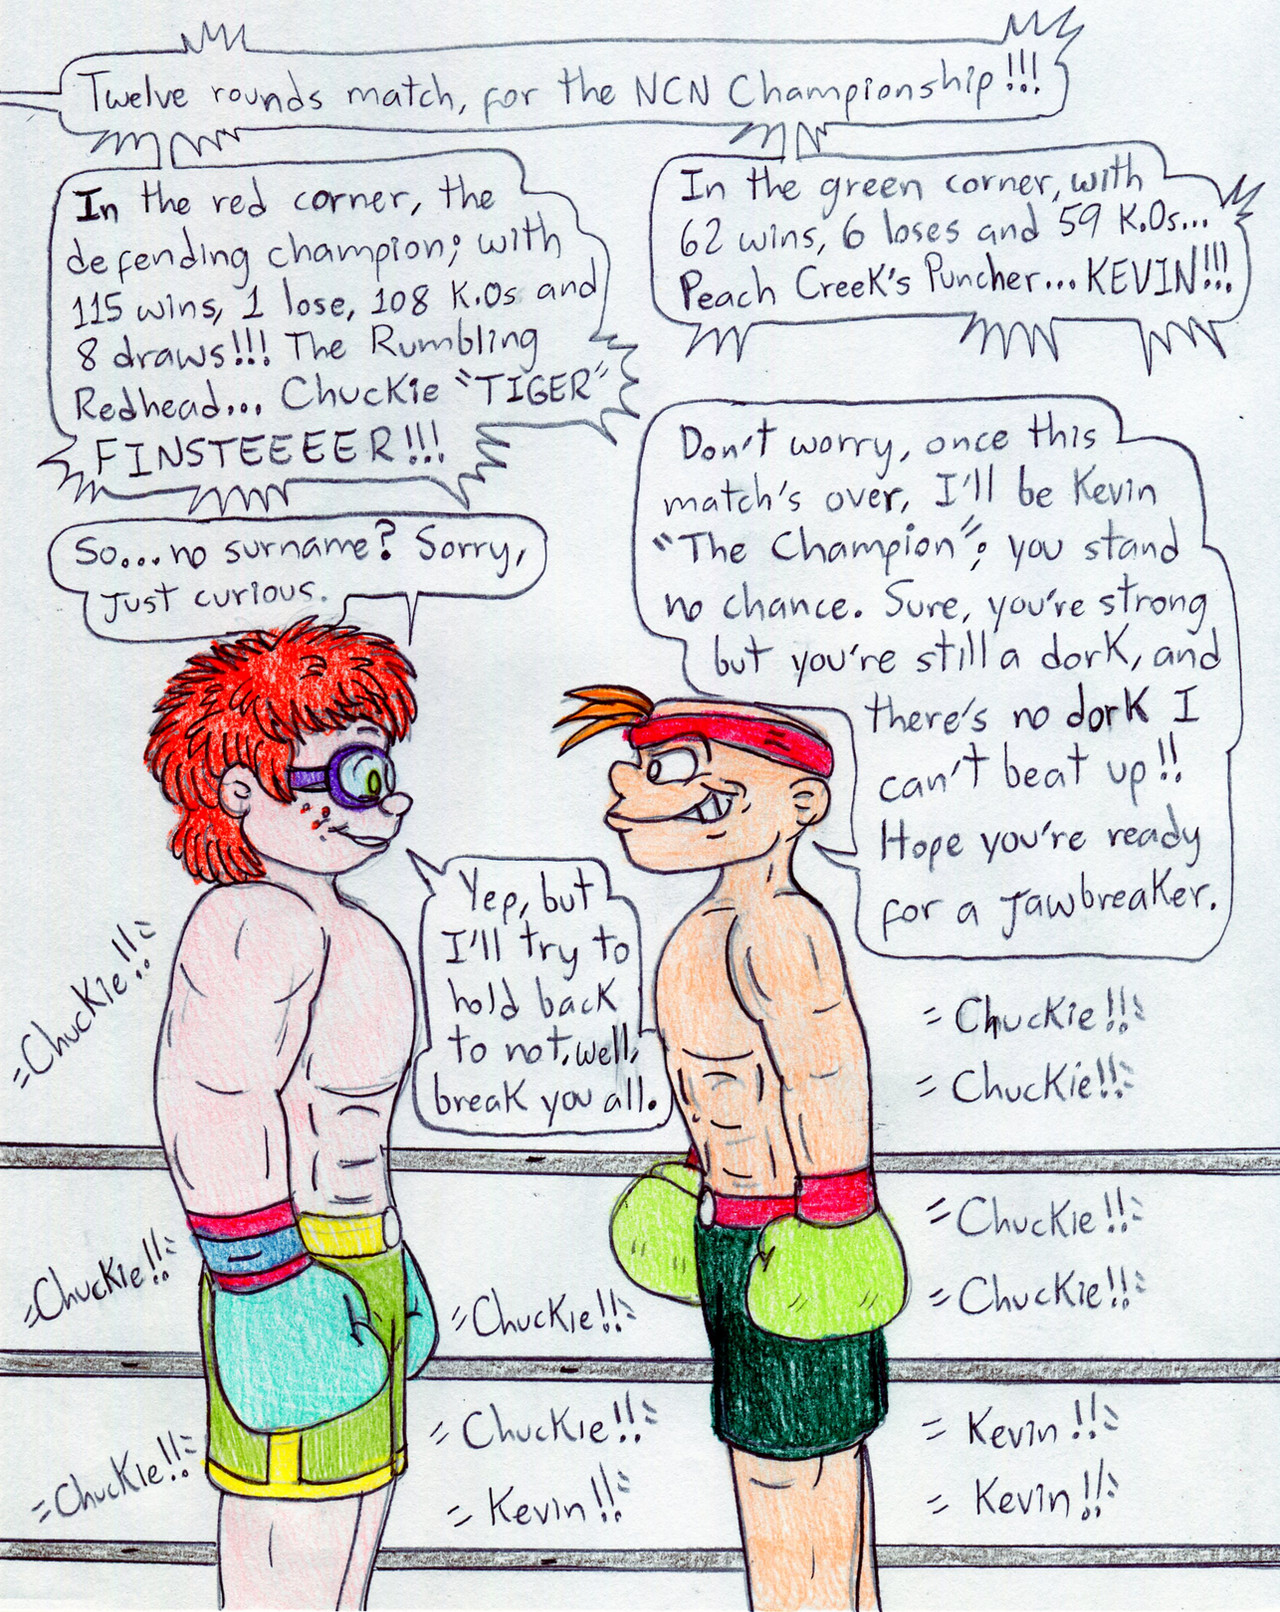 Twelve rounds match, for the NCN Championship!!!
In the red corner, the
defending champion; with
115 wins, 1 lose, 108 K.Os and
8 draws!!! The Rumbling
Redhead... Chuckie "TIGER"
FINSTEEEER!!!
In the green corner, with
62 wins, 6 loses and 59 K.Os...
Peach Creek's Puncher... KEVIN!!!
So... no surname? Sorry,
just curious.
Don't worry, once this
match's over, I'll be Kevin
"The Champion"; you stand
no chance. Sure, you're strong
but you're still a dork, and
there's no dork I
can't beat up!!
Hope you're ready
for a jawbreaker.
Yep, but
I'll try to
hold back
to not, well,
break you all.
Chuckie!!
Chuckie!!
Chuckie!!
Chuckie!!
Chuckie!!
Chuckie!!
Chuckie!!
Chuckie!!
Chuckie!!
Kevin!!
Kevin!!
Kevin!!